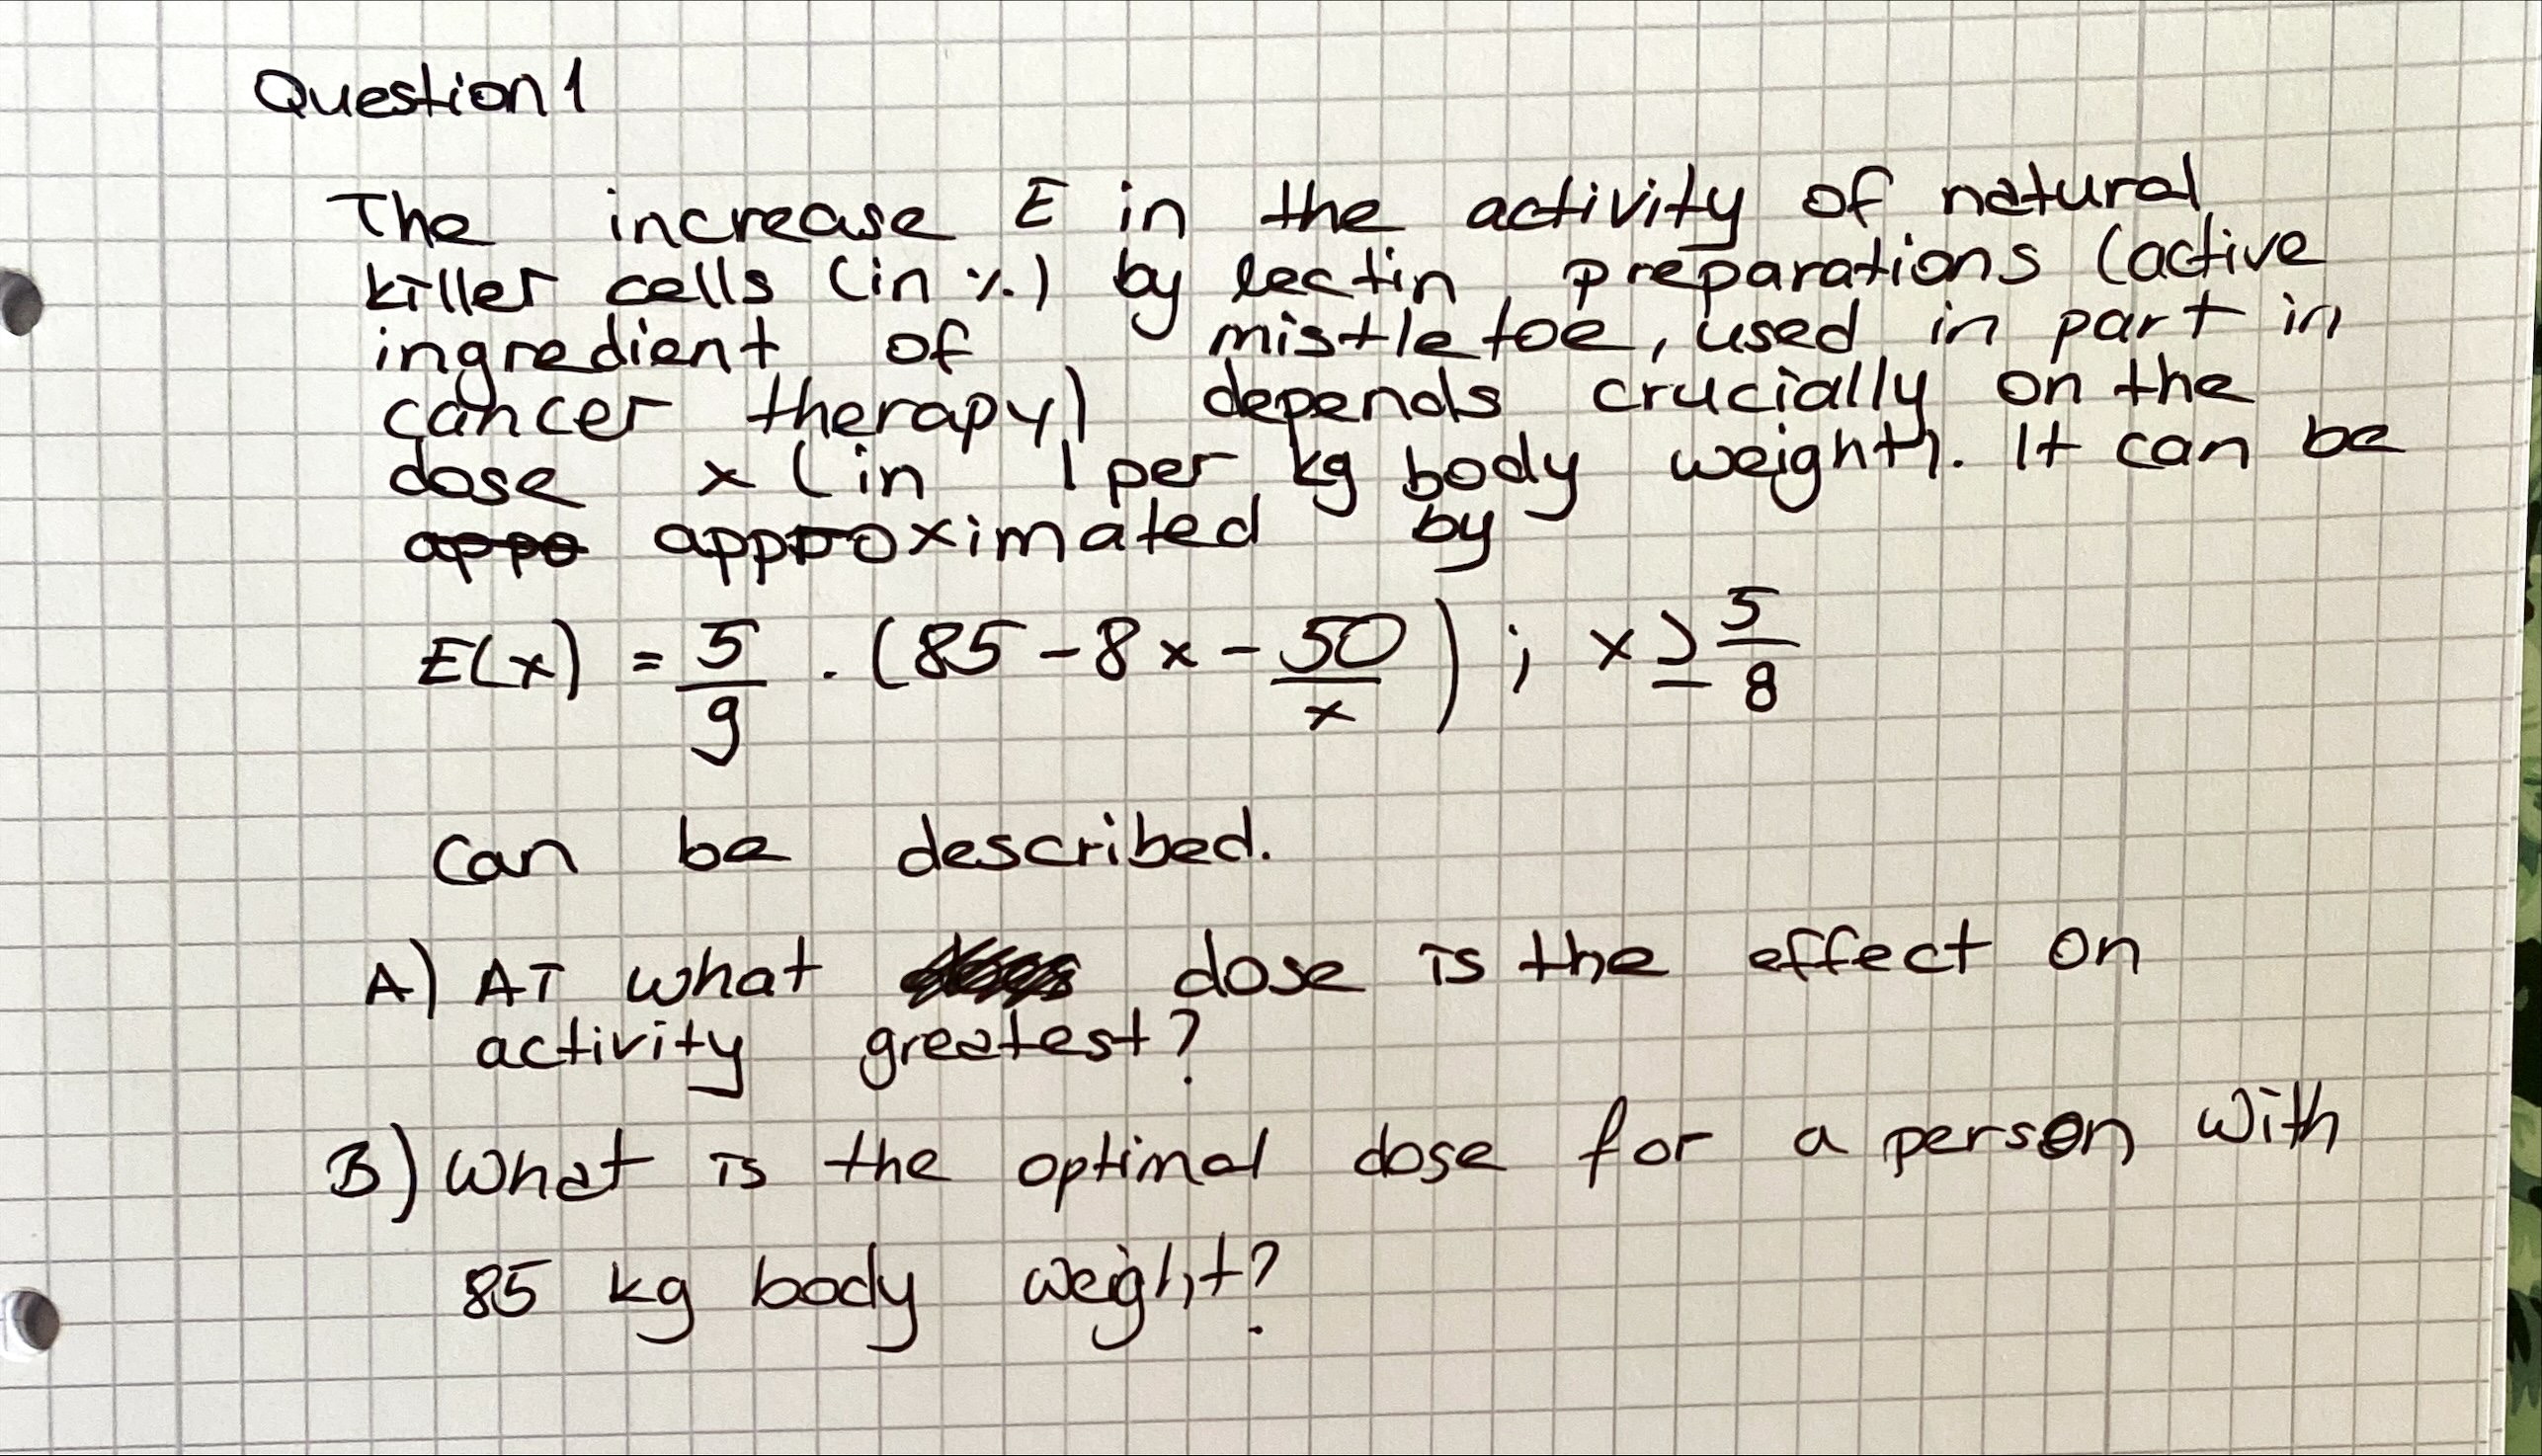 Question 1
The increase E in the activity of natural
killer cells (in %) by lectin preparations (active
ingredient of mistletoe, used in part in
cancer therapy) depends crucially on the
dose x (in 1 per kg body weight). It can be
appo approximated by
E(x) = 5/9 · (85 - 8x - 50/x) ; x ≥ 5/8
can be described.
A) AT what dose is the effect on
activity greatest?
B) What is the optimal dose for a person with
85 kg body weight?